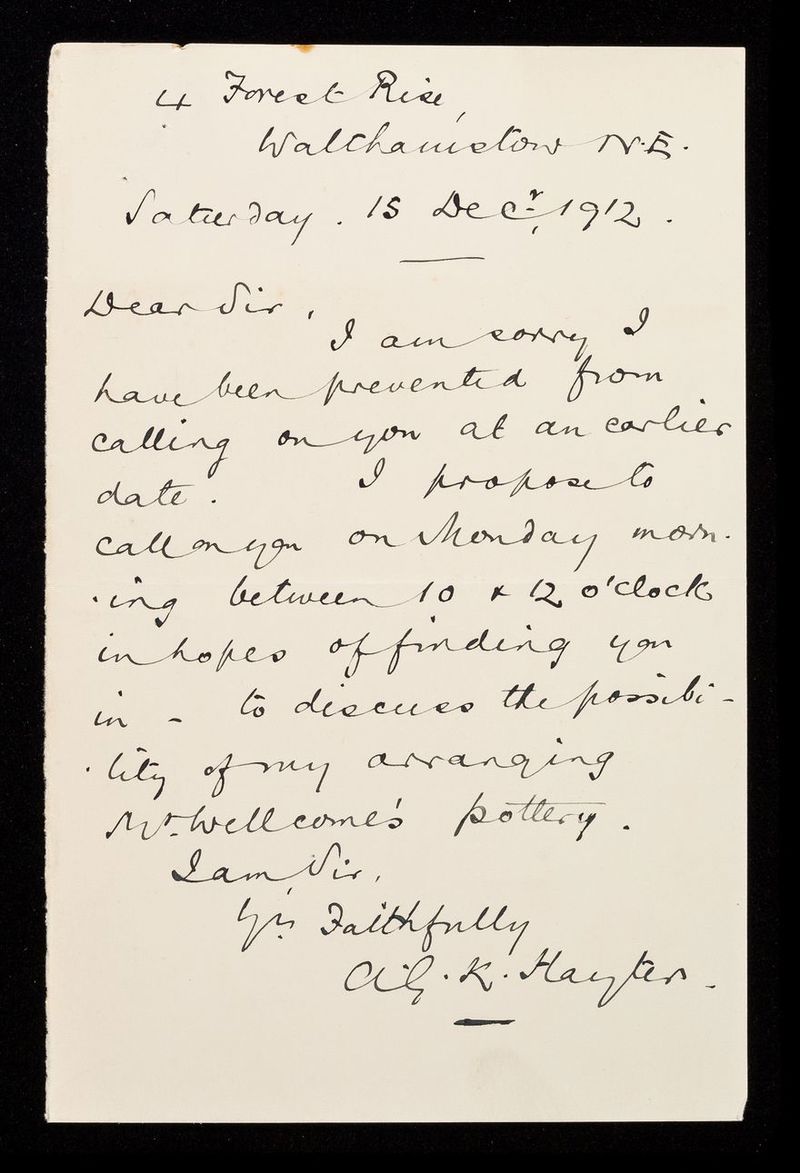 4 Forest Rise,
Walthamstow N.E.
Saturday. 15 Decr, 1912.
Dear Sir,
I am sorry I
have been prevented from
calling on you at an earlier
date. I propose to
call on you on Monday morn-
-ing between 10 & 12 o'clock
in hopes of finding you
in - to discuss the possibi-
-lity of my arranging
Mr. Wellcome's pottery.
I am, Sir,
Yrs Faithfully
A.G.K. Hayter.